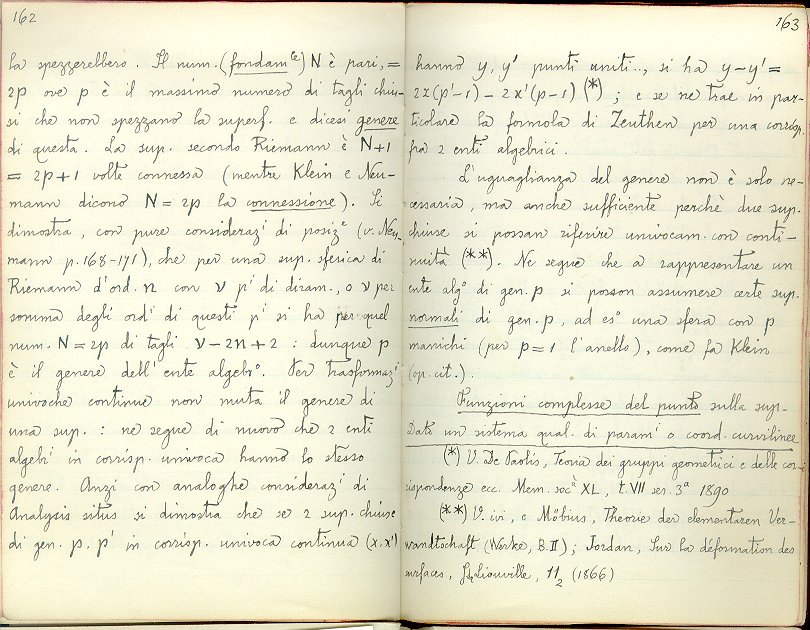 162
ha spezzerebbero. Il num. (fondam^le) N è pari, =
2p ove p è il massimo numero di tagli chiu-
si che non spezzano la superf. e dicesi genere
di questa. La sup. secondo Riemann è N+1
= 2p+1 volte connessa (mentre Klein e Neu-
mann dicono N = 2p la connessione). Si
dimostra, con pure consideraz^i di posiz^e (v. Neu-
mann p. 168-171), che per una sup. sferica di
Riemann d'ord. n con ν p^i di diram., o ν per
somma degli ord^i di questi p^i si ha per quel
num. N=2p di tagli ν-2n+2 : dunque p
è il genere dell'ente algeb^o. Per trasformaz^i
univoche continue non muta il genere di
una sup. : ne segue di nuovo che 2 enti
algeb^i in corrisp. univoca hanno lo stesso
genere. Anzi con analoghe consideraz^i di
Analysis situs si dimostra che se 2 sup. chiuse
di gen. p, p' in corrisp. univoca continua (x, x')
163
hanno y, y' punti uniti.., si ha y-y' =
2x(p'-1) - 2x'(p-1) (*) ; e se ne trae in par-
ticolare la formola di Zeuthen per una corrisp.
fra 2 enti algebrici.
L'uguaglianza del genere non è solo ne-
cessaria, ma anche sufficiente perchè due sup.
chiuse si possan riferire univocam. con conti-
nuità (**). Ne segue che a rappresentare un
ente alg^o di gen. p si posson assumere certe sup.
normali di gen. p, ad es^o una sfera con p
manichi (per p=1 l'anello), come fa Klein
(op. cit.).
Funzioni complesse del punto sulla sup.
Dato un sistema qual. di param^i o coord. curvilinee
(*) V. De Paolis, Teoria dei gruppi geometrici e delle cor-
rispondenze ecc. Mem. soc^à XL, t. VII ser. 3^a 1890
(**) V. ivi, e Möbius, Theorie der elementaren Ver-
wandtschaft (Werke, B. II); Jordan, Sur la déformation des
surfaces, J. Liouville, 11₂ (1866)